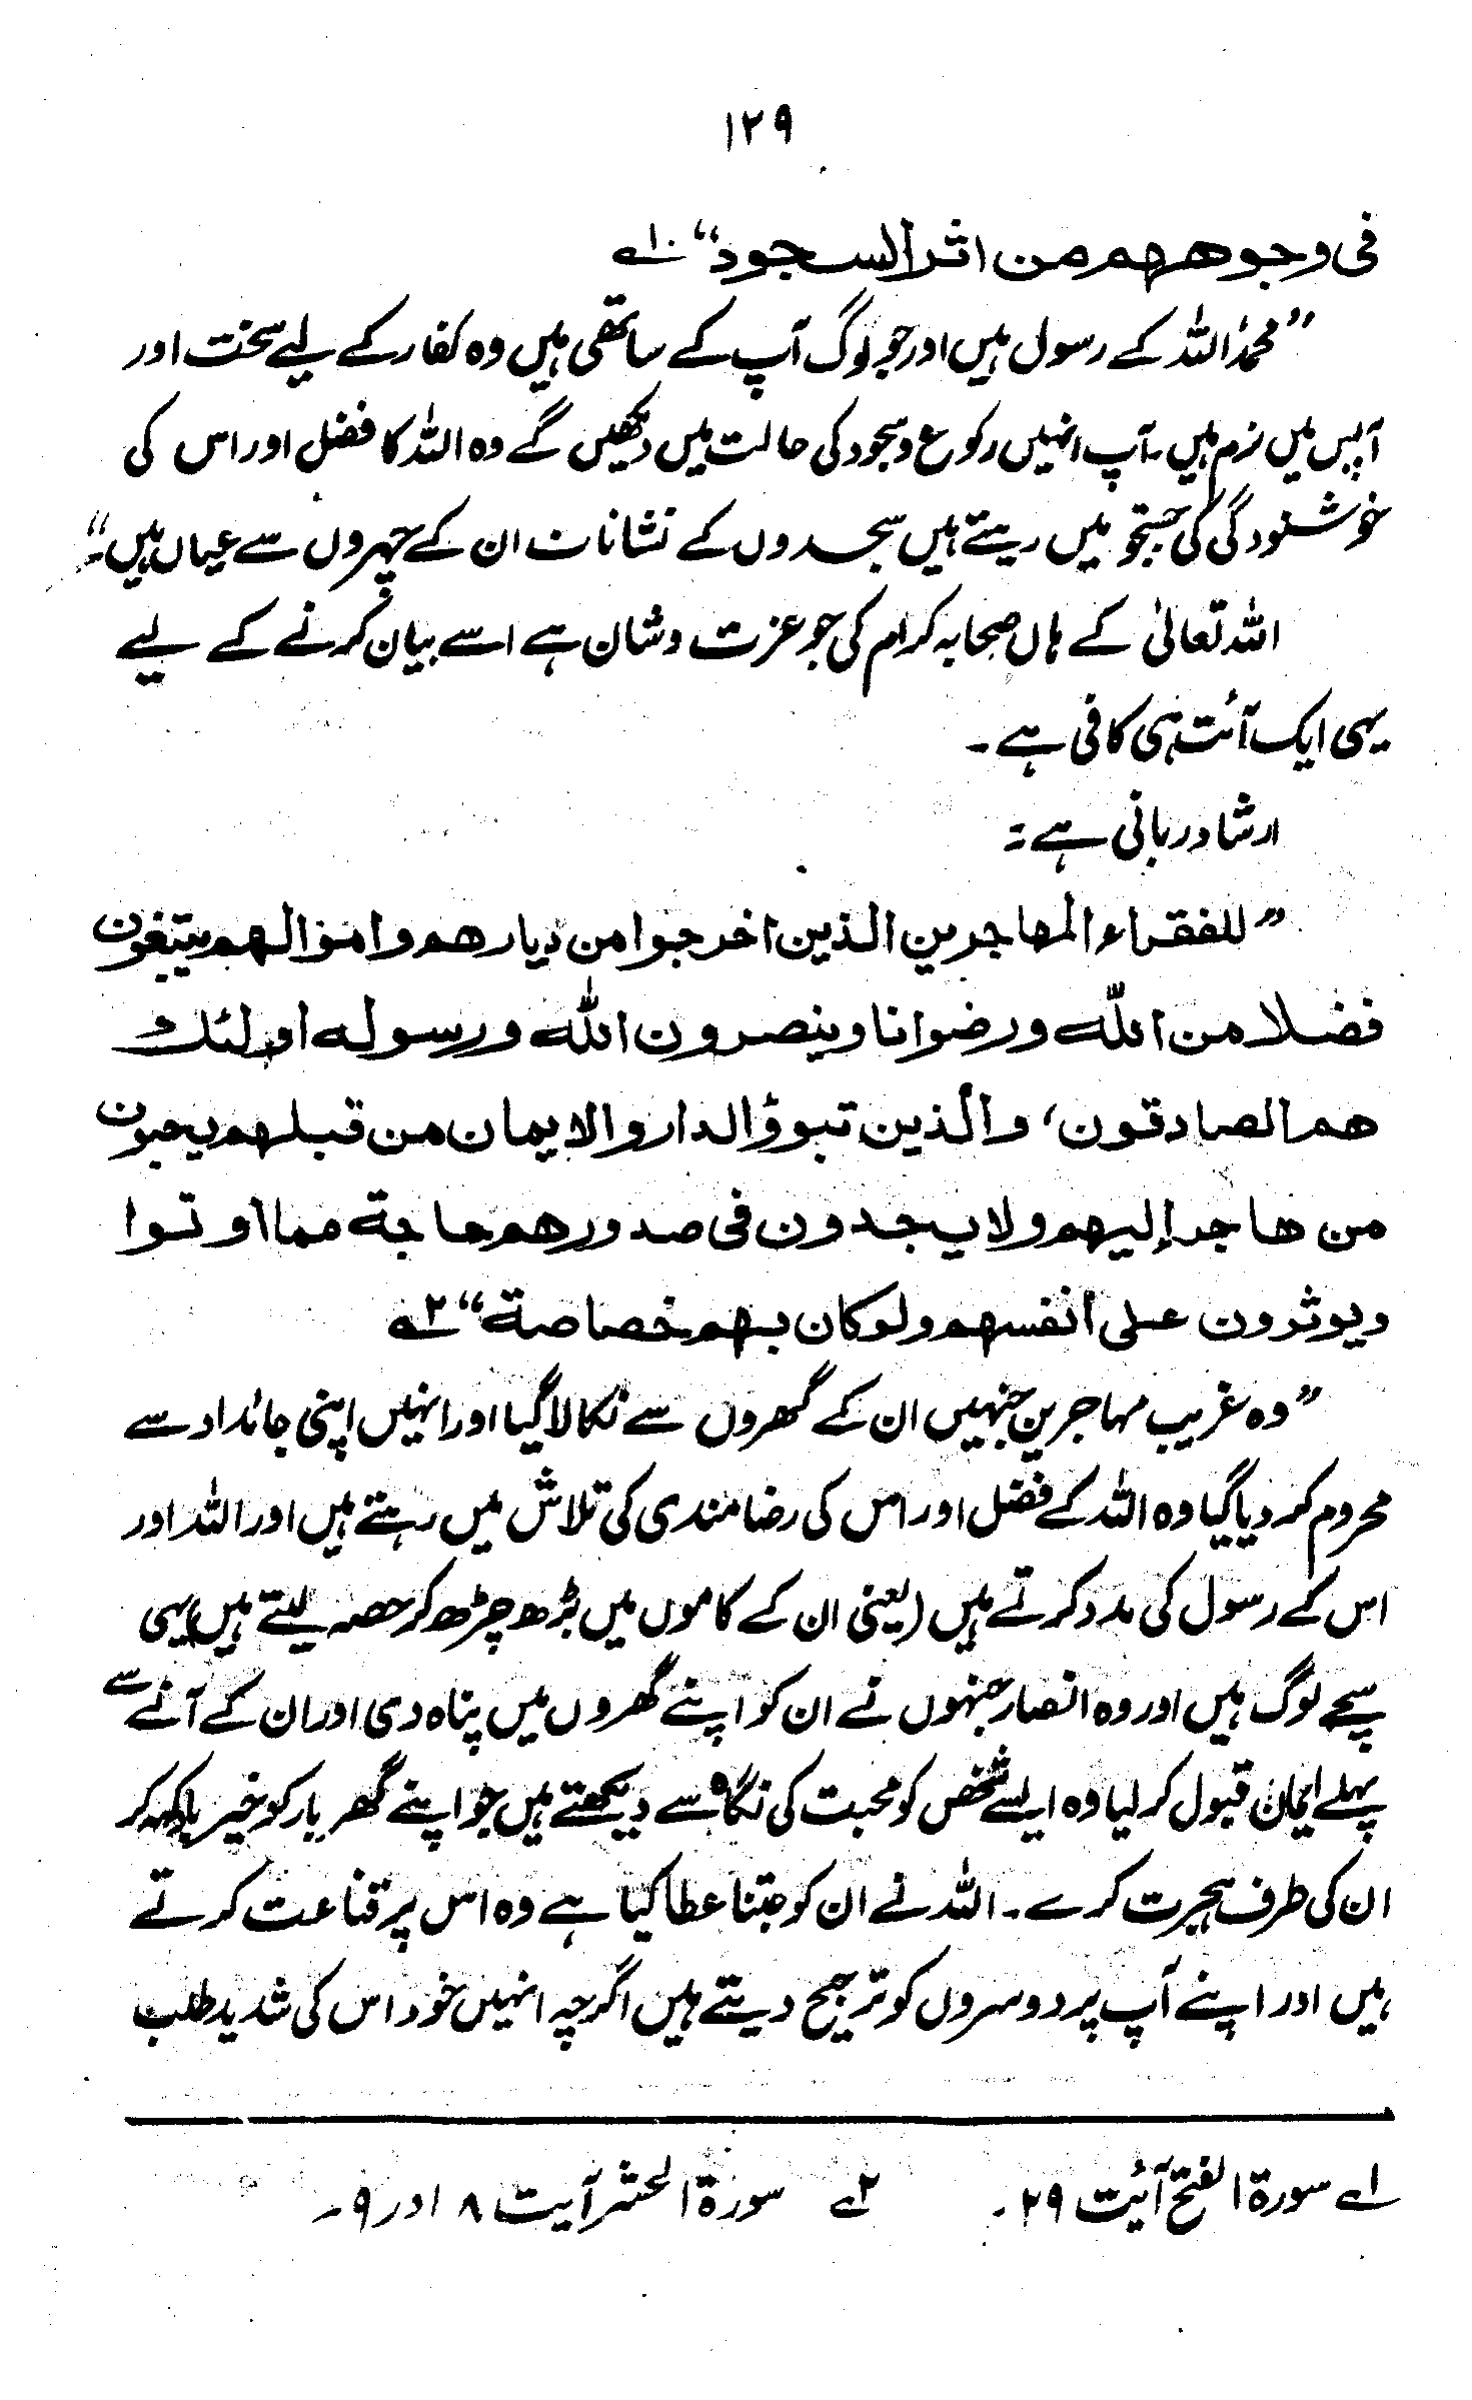 ۱۲۹
فی وجوههم من اثر السجود“ ۱ے
”محمدؐ اللہ کے رسول ہیں اور جو لوگ آپ کے ساتھی ہیں وہ کفار کے لیے سخت اور
آپس میں نرم ہیں۔ آپ انہیں رکوع و سجود کی حالت میں دیکھیں گے وہ اللہ کا فضل اور اس کی
خوشنودگی کی جستجو میں رہتے ہیں سجدوں کے نشانات ان کے چہروں سے عیاں ہیں۔“
اللہ تعالیٰ کے ہاں صحابہ کرام کی جو عزت و شان ہے اسے بیان کرنے کے لیے
یہی ایک آئت ہی کافی ہے۔
ارشاد ربانی ہے :
”للفقراء المهاجرین الذین اخرجوا من دیارهم و اموالهم یبتغون
فضلا من اللّٰه و رضوانا و ینصرون اللّٰه و رسوله اولئك
هم الصادقون، والذین تبوؤالدار والایمان من قبلهم یحبون
من هاجر إلیهم ولا یجدون فی صدورهم حاجة مما اوتوا
ویوثرون علی أنفسهم ولو کان بهم خصاصة“ ۲ے
”وہ غریب مہاجرین جنہیں ان کے گھروں سے نکالا گیا اور انہیں اپنی جائداد سے
محروم کر دیا گیا وہ اللہ کے فضل اور اس کی رضا مندی کی تلاش میں رہتے ہیں اور اللہ اور
اس کے رسول کی مدد کرتے ہیں (یعنی ان کے کاموں میں بڑھ چڑھ کر حصہ لیتے ہیں) یہی
سچے لوگ ہیں اور وہ انصار جنہوں نے ان کو اپنے گھروں میں پناہ دی اور ان کے آنے سے
پہلے ایمان قبول کر لیا وہ ایسے شخص کو محبت کی نگاہ سے دیکھتے ہیں جو اپنے گھر بار کو خیر باد کہہ کر
ان کی طرف ہجرت کرے۔ اللہ نے ان کو جتنا عطا کیا ہے وہ اس پر قناعت کرتے
ہیں اور اپنے آپ پر دوسروں کو ترجیح دیتے ہیں اگرچہ انہیں خود اس کی شدید طلب
۱ے سورۃ الفتح آئت ۲۹۔ ۲ے سورۃ الحشر آیت ۸ اور ۹۔